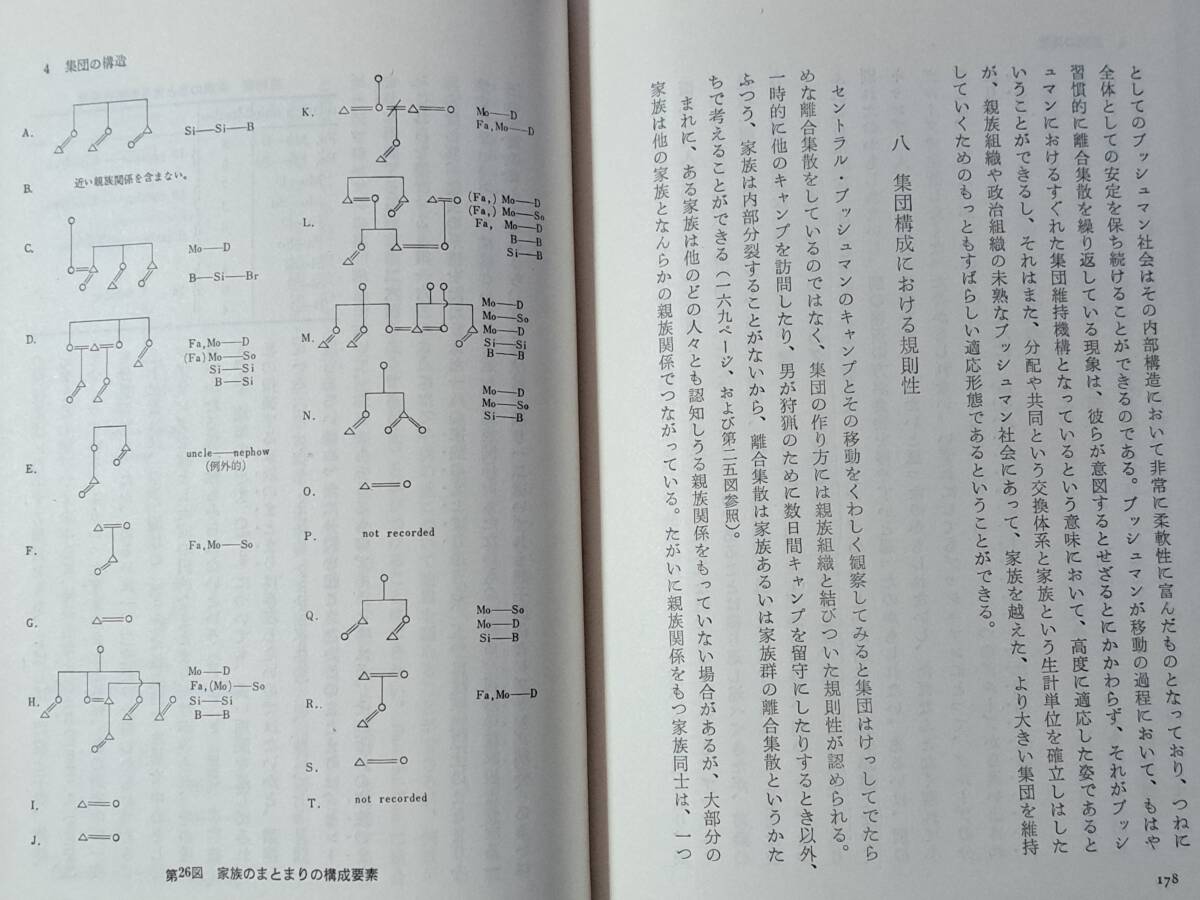 としてのブッシュマン社会はその内部構造において非常に柔軟性に富んだものとなっており、つねに
全体としての安定を保ち続けることができるのである。ブッシュマンが移動の過程において、もはや
習慣的に離合集散を繰り返している現象は、彼らが意図するとせざるとにかかわらず、それがブッシ
ュマンにおけるすぐれた集団維持機構となっているという意味において、高度に適応した姿であると
いうことができるし、それはまた、分配や共同という交換体系と家族という生計単位を確立しはした
が、親族組織や政治組織の未熟なブッシュマン社会にあって、家族を越えた、より大きい集団を維持
していくためのもっともすばらしい適応形態であるということができる。
八　集団構成における規則性
セントラル・ブッシュマンのキャンプとその移動をくわしく観察してみると集団はけっしてでたら
めな離合集散をしているのではなく、集団の作り方には親族組織と結びついた規則性が認められる。
一時的に他のキャンプを訪問したり、男が狩猟のために数日間キャンプを留守にしたりするとき以外、
ふつう、家族は内部分裂することがないから、離合集散は家族あるいは家族群の離合集散というかた
ちで考えることができる（一六九ページ、および第二五図参照）。
まれに、ある家族は他のどの人々とも認知しうる親族関係をもっていない場合があるが、大部分の
家族は他の家族となんらかの親族関係でつながっている。たがいに親族関係をもつ家族同士は、一つ
178
4　集団の構造
A.
Si—Si—B
B.
近い親族関係を含まない。
C.
Mo—D
B—Si—Br
D.
Fa,Mo—D
(Fa)Mo—So
Si—Si
B—Si
E.
uncle—nephow
(例外的)
F.
Fa,Mo—So
G.
H.
Mo—D
Fa,(Mo)—So
Si—Si
B—B
I.
J.
K.
Mo—D
Fa,Mo—D
L.
(Fa,) Mo—D
(Fa,) Mo—So
Fa, Mo—D
B—B
Si—B
M.
Mo—D
Mo—So
Mo—D
Si—Si
B—B
N.
Mo—D
Mo—So
Si—B
O.
P.
not recorded
Q.
Mo—So
Mo—D
Si—B
R.
Fa,Mo—D
S.
T.
not recorded
第26図　家族のまとまりの構成要素